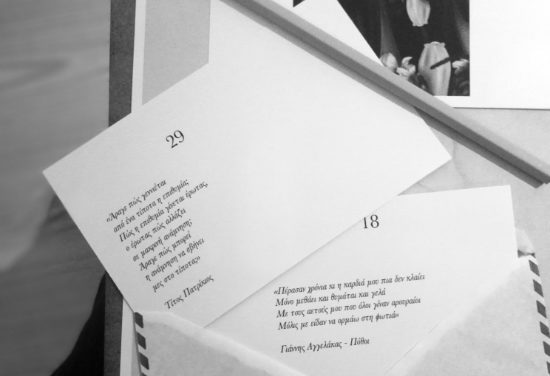 29
«Άραγε πώς γεννιέται
από ένα τίποτα η επιθυμία;
Πώς η επιθυμία γίνεται έρωτας,
ο έρωτας πώς αλλάζει
σε μακρινή ανάμνηση;
Άραγε πώς μπορεί
η ανάμνηση να σβήνει
μες στο τίποτα;»
Τίτος Πατρίκιος
18
«Πέρασαν χρόνια κι η καρδιά μου πια δεν κλαίει
Μόνο μεθάει και θυμάται και γελά
Με τους αετούς μου που όλοι γίναν αροτραίοι
Μόλις με είδαν να ορμάω στη φωτιά»
Γιάννης Αγγελάκας - Πόθοι